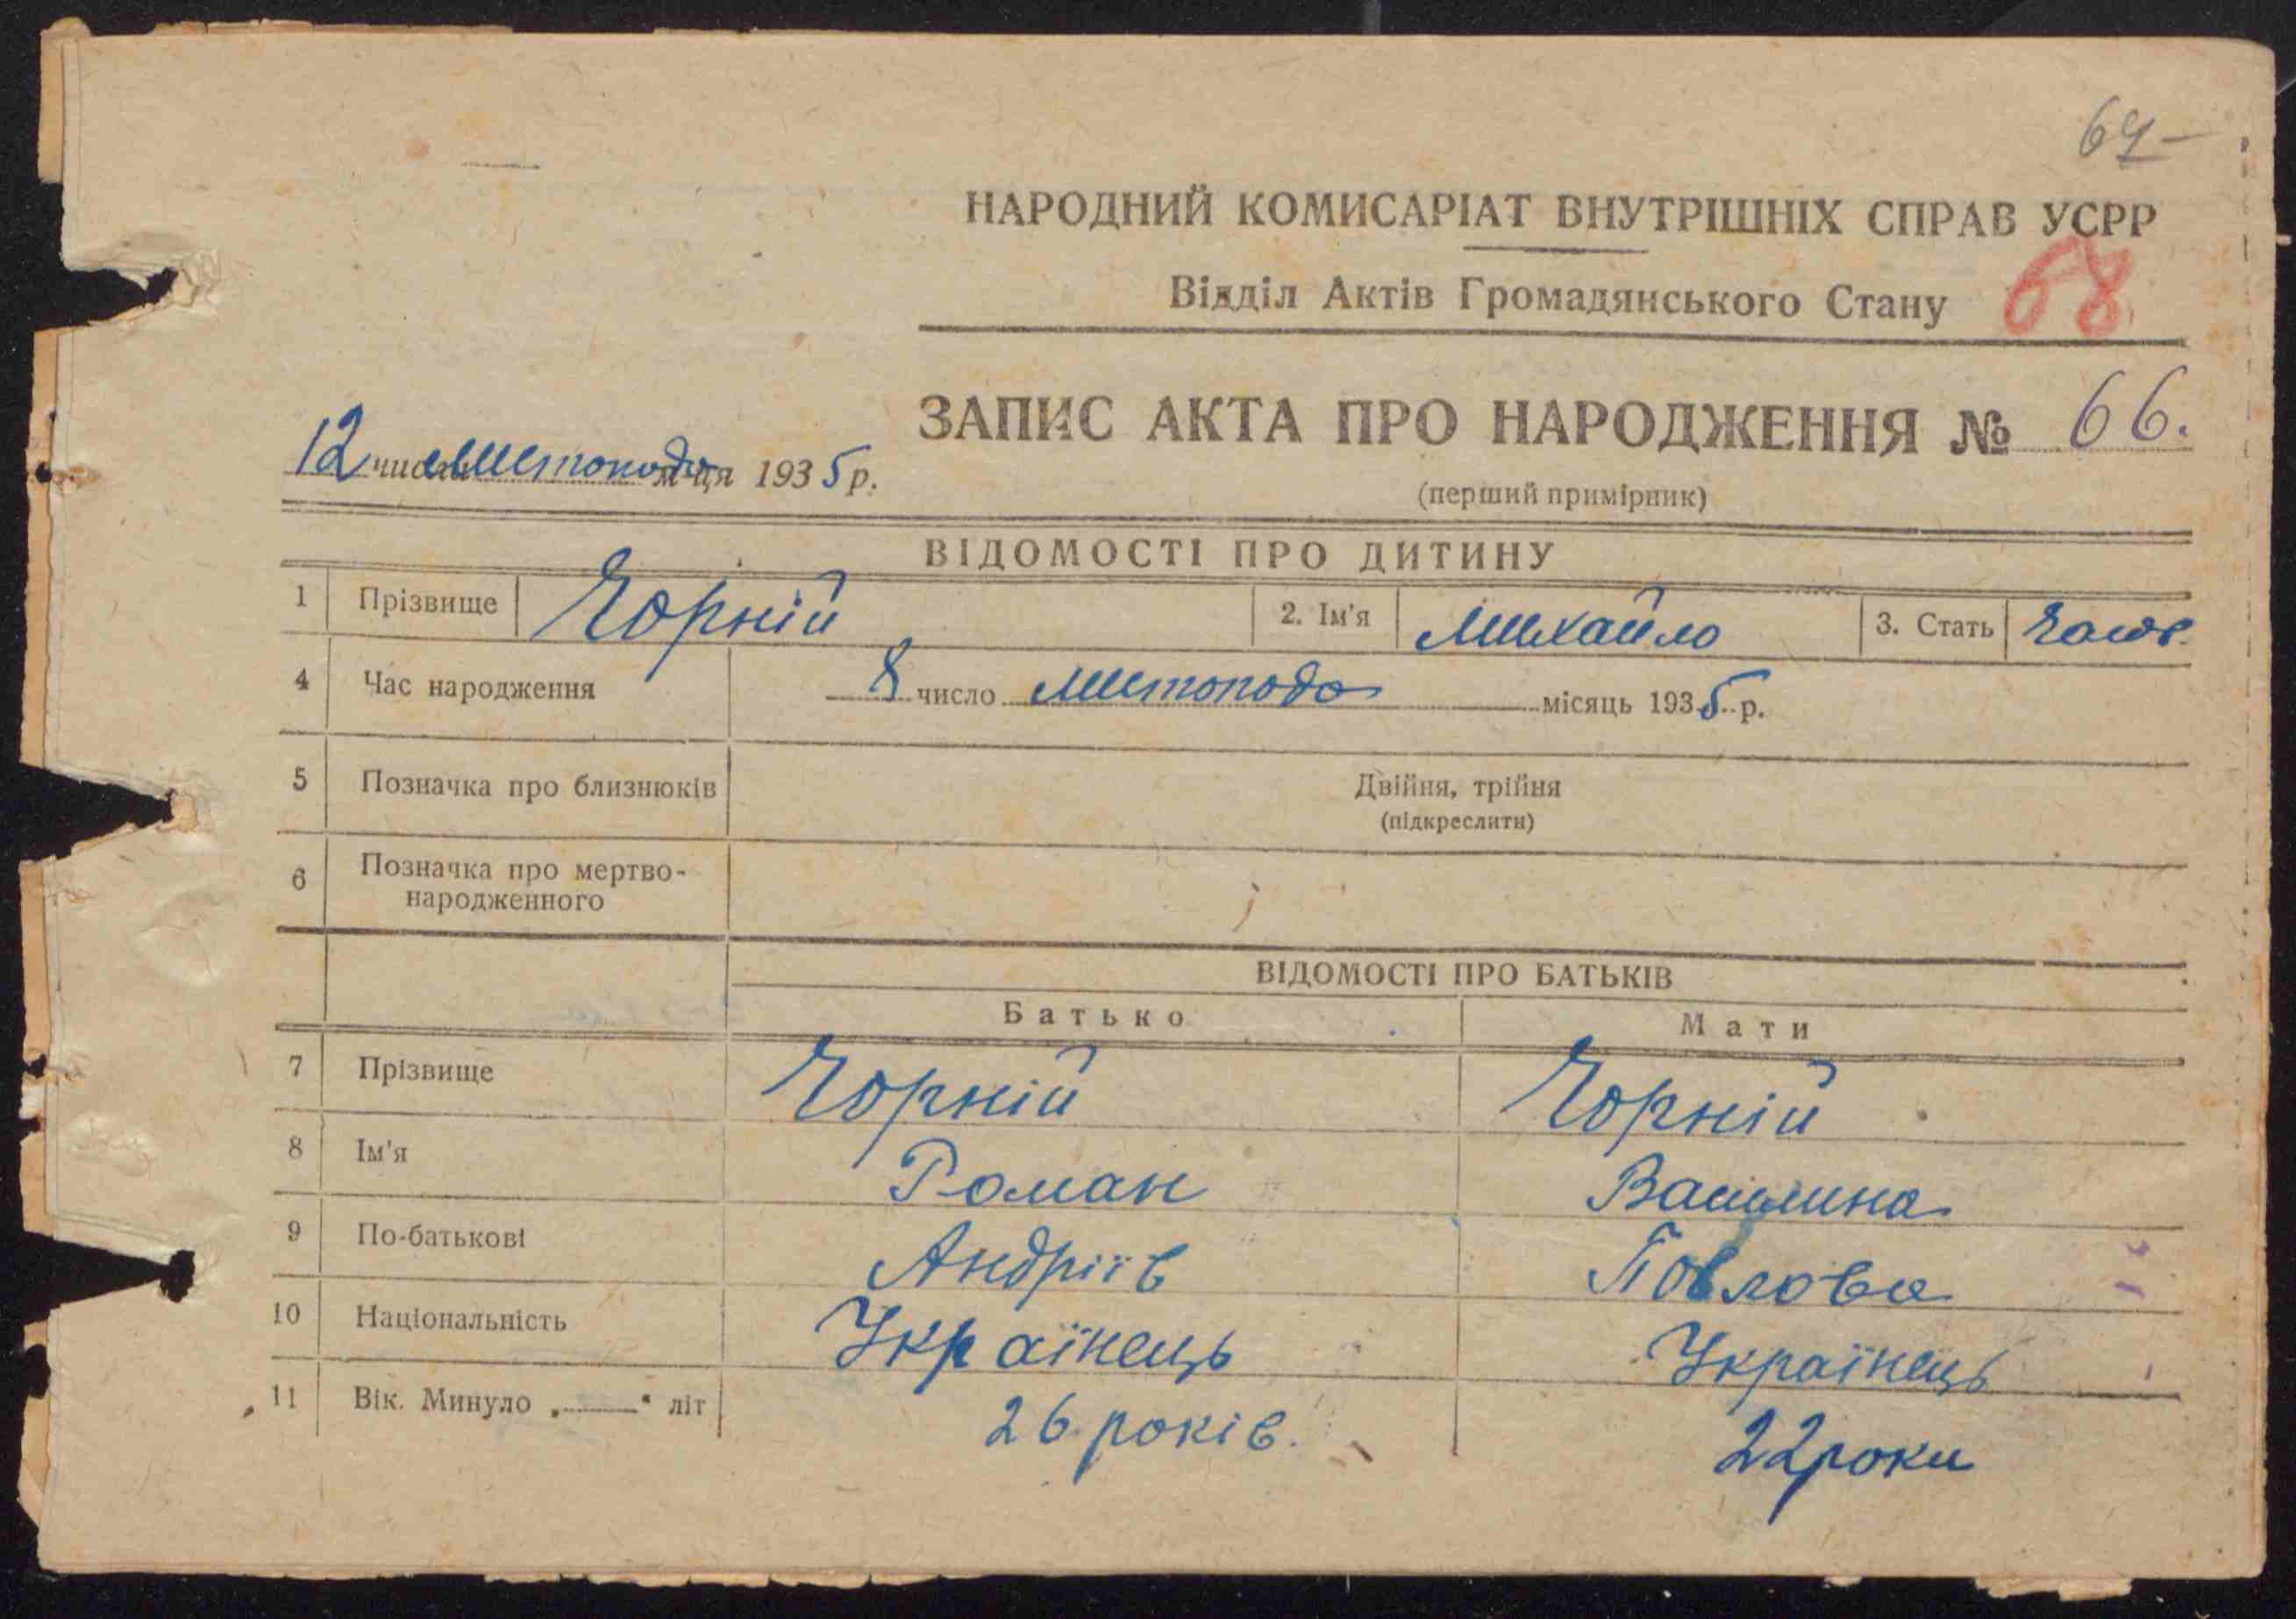 64-
НАРОДНИЙ КОМИСАРІАТ ВНУТРІШНІХ СПРАВ УСРР
Відділ Актів Громадянського Стану 68
ЗАПИС АКТА ПРО НАРОДЖЕННЯ № 66.
12 числа листопада м-ця 1935 р.
(перший примірник)
ВІДОМОСТІ ПРО ДИТИНУ
1 Прізвище Чорній 2. Ім'я Михайло 3. Стать Чолов.
4 Час народження 8 число листопода місяць 1935 р.
5 Позначка про близнюків Двійня, трійня
(підкреслити)
6 Позначка про мертво-
народженного
ВІДОМОСТІ ПРО БАТЬКІВ
Батько Мати
7 Прізвище Чорній Чорній
8 Ім'я Роман Василина
9 По-батькові АндріївПовлова
10 Національність Українець Українець
11 Вік. Минуло „ “ літ 26 років. 22 роки